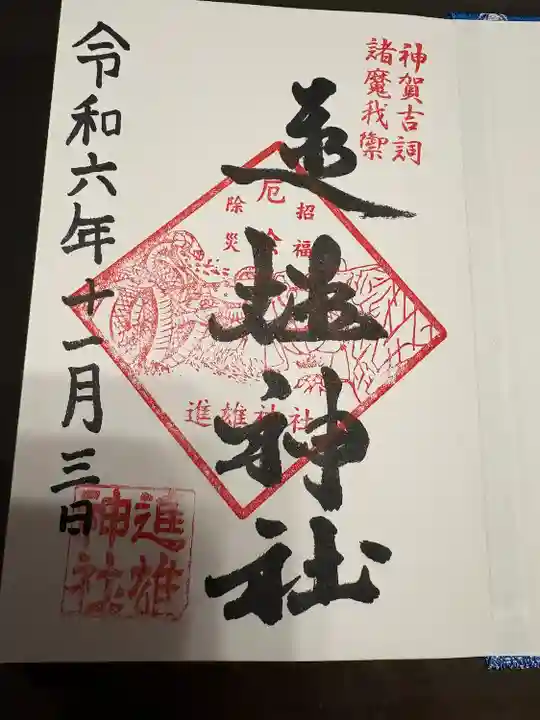 神賀吉詞
諸魔我禦
進雄神社
招福
厄
除災
進雄神社
令和六年十一月三日
進雄
神社